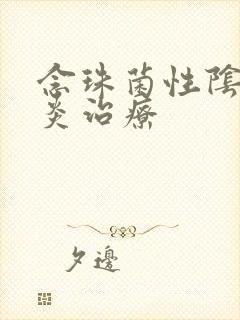 念珠菌性陰
炎治療
夕邊